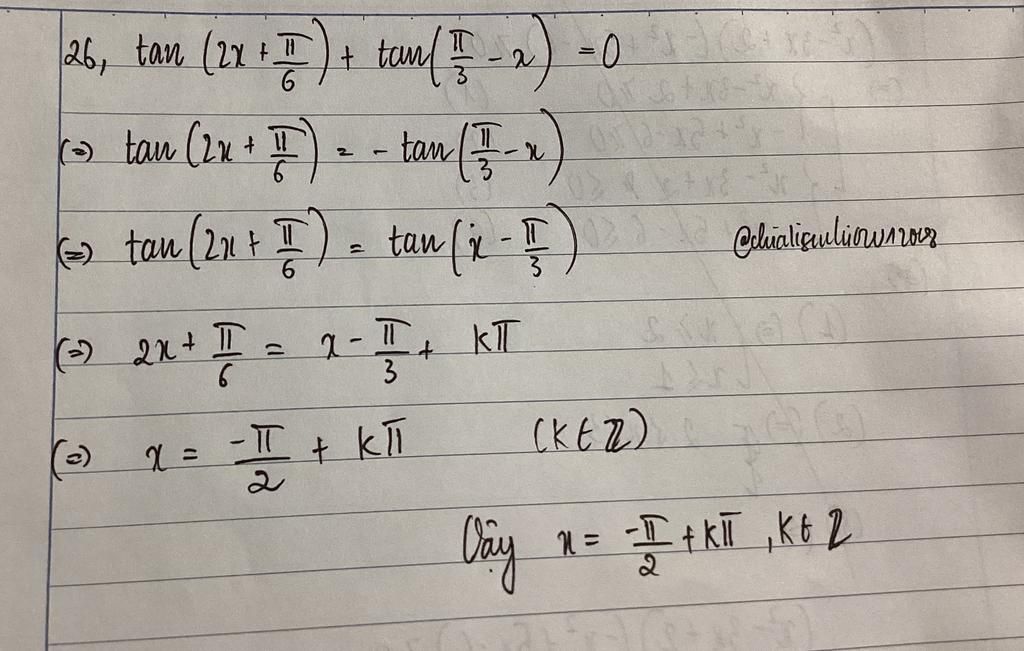 26, tan (2x + π/6) + tan(π/3 - x) = 0
(=) tan (2x + π/6) = - tan(π/3 - x)
(=) tan (2x + π/6) = tan(x - π/3)
(=) 2x + π/6 = x - π/3 + kπ
(=) x = -π/2 + kπ (k ∈ Z)
Vậy x = -π/2 + kπ , k ∈ Z